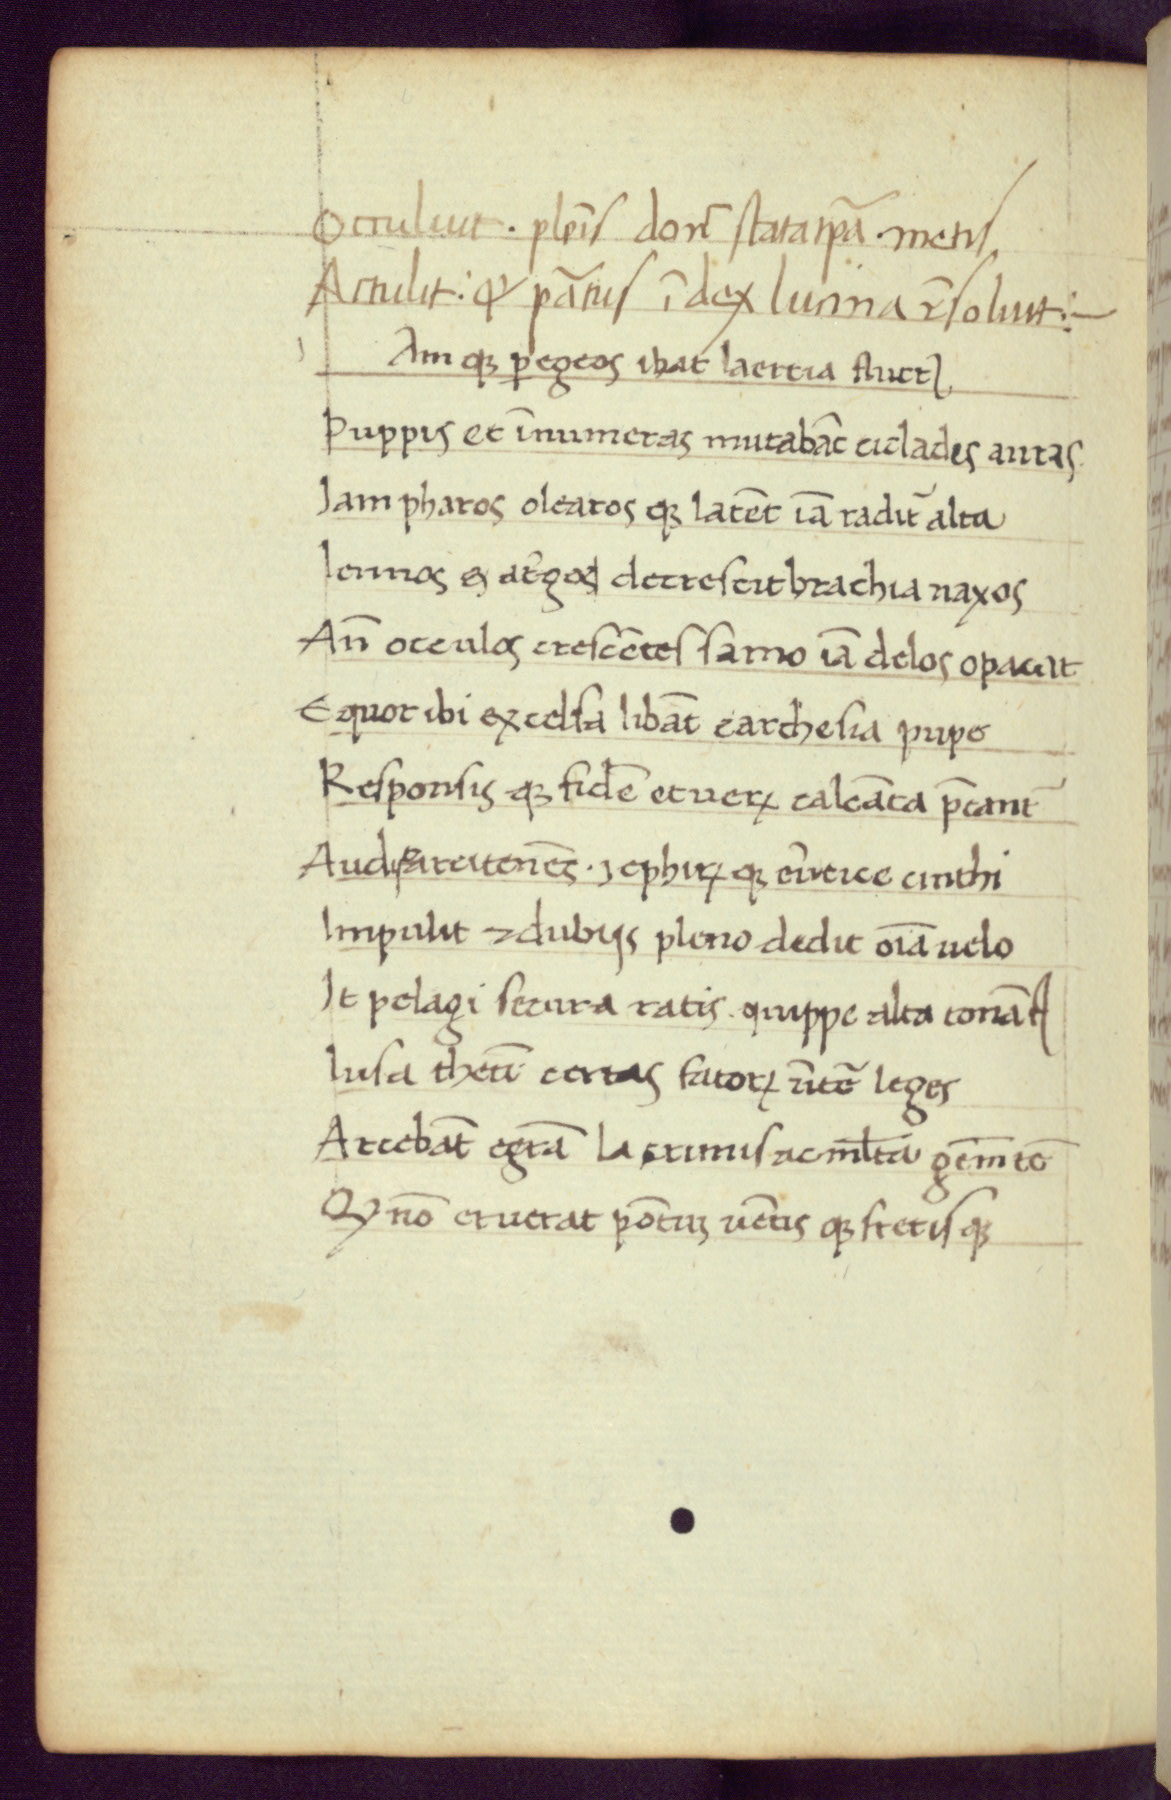 Occuluit . pleīs donc̄ stata tp̄a metis
Attulit: & p̄atus īdex lucina r̄soluit:~
Am qꝫ ꝑ egeos ibat laertia fluctꝰ
Puppis et īnumeras mutabāt ciclades auras
Iam pharos olearos qꝫ latēt iā radit̄ alta
lennos & ar̄gos decrescit brachia naxos
An̄ occulos crescētes samo iā delos opacat
Equor ibi excelsa libāt carchesia pupe
Responsis qꝫ fidē et ueꝝ calcāta p̄cant̄
Audiit arcitenēs . zephiꝝ qꝫ eīuertice cinthi
Impulit ⁊ dubijs pleno dedit oīa uelo
It pelagi secura ratis quippe alta tonātꝭ
lusa thetī certas fatoꝝ ūtē leges
Arcebāt egrā lacrimis ac ml̄ta gēm tē
Qꝫ nō eruerat pōtuꝫ uētis qꝫ fretis qꝫ